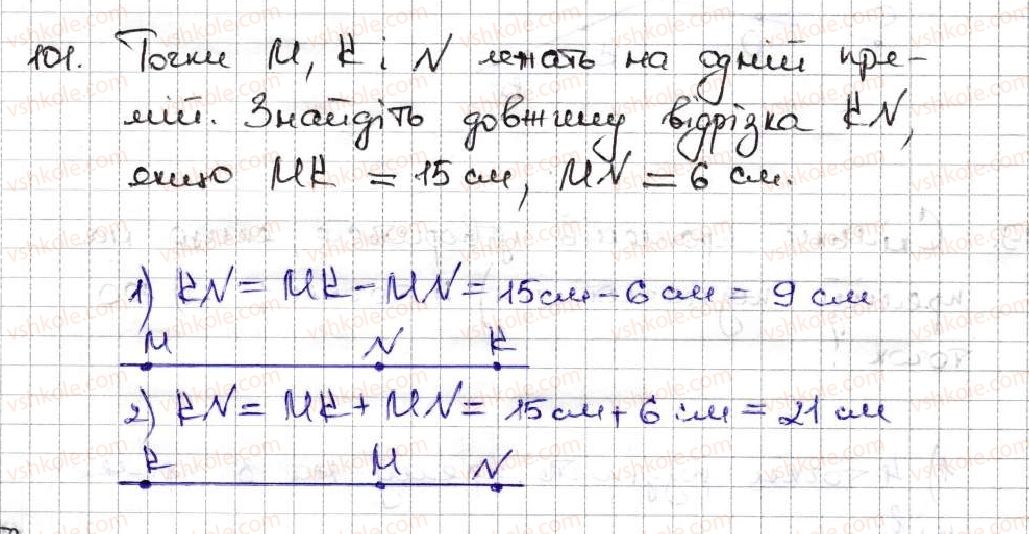 101. Точки M, K і N лежать на одній пря-
мій. Знайдіть довжину відрізка KN,
якщо MK = 15 см, MN = 6 см.
1) KN = MK - MN = 15 см - 6 см = 9 см
M N K
2) KN = MK + MN = 15 см + 6 см = 21 см
K M N
vshkole.com